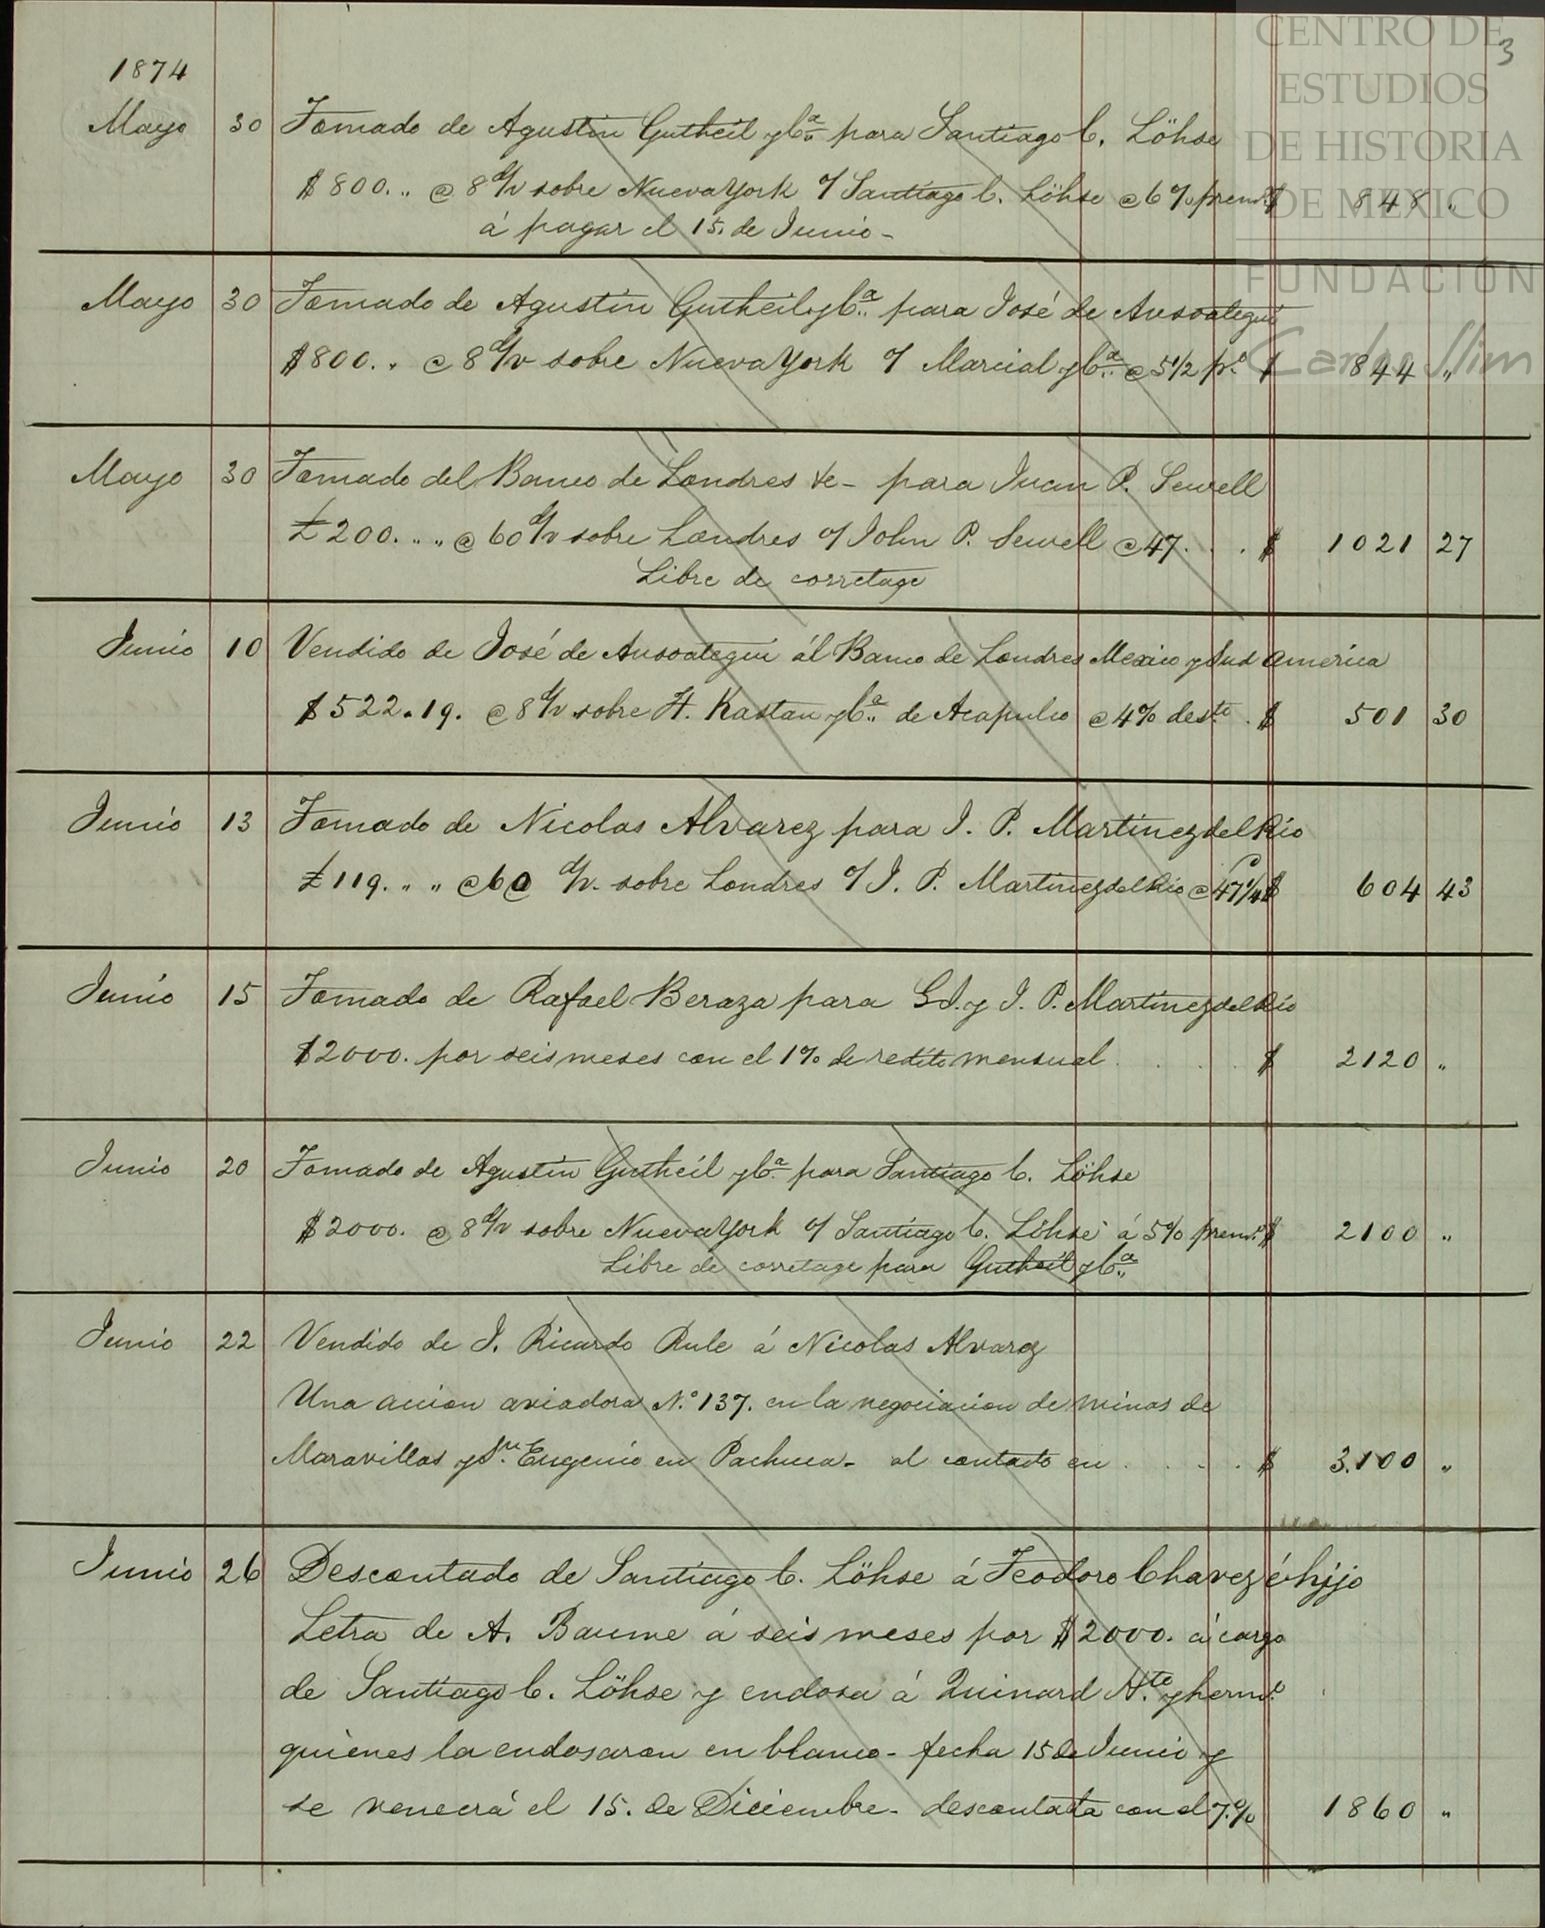 CENTRO DE
ESTUDIOS
DE HISTORIA
DE MEXICO
FUNDACIÓN
Carlos Slim
3
1874
Mayo 30 Tomado de Agustin Gutheil y Cª para Santiago C. Löhse
$800. „ @ 8 d/v sobre Nueva York o/ Santiago C. Löhse @ 6% premº $ 848 „
á pagar el 15. de Junio-
Mayo 30 Tomado de Agustin Gutheil y Cª para José de Ansoategui
$800. „ @ 8 d/v sobre Nueva York o/ Marcial y Cª @ 5 1/2 p.º $ 844 „
Mayo 30 Tomado del Banco de Londres &c- para Juan P. Sewell
£200. „ „ @ 60 d/v sobre Londres o/ John P. Sewell @ 47 . . . $ 1021 27
Libre de corretage
Junio 10 Vendido de José de Ansoategui ál Banco de Londres Mexico y Sud America
$522.19. @ 8 d/v sobre H. Kastan y Cª de Acapulco @ 4% desto . $ 501 30
Junio 13 Tomado de Nicolas Alvarez para J. P. Martinez del Rio
£119. „ „ @ 60 d/v. sobre Londres o/ J. P. Martinez del Rio @ 47 1/4 $ 604 43
Junio 15 Tomado de Rafael Beraza para G. J. y J. P. Martinez del Rio
$2000. por seis meses con el 1% de redito mensual . . . . $ 2120 „
Junio 20 Tomado de Agustin Gutheil y Cª para Santiago C. Löhse
$2000. @ 8 d/v sobre Nueva York o/ Santiago C. Löhse á 5% premº $ 2100 „
Libre de corretage para Gutheil y Cª
Junio 22 Vendido de J. Ricardo Rule á Nicolas Alvarez
Una accion aviadora N.º 137. en la negociacion de minas de
Maravillas y Sn. Eugenio en Pachuca- al contado en . . . . $ 3.100 „
Junio 26 Descontado de Santiago C. Löhse á Teodoro Chavez é hijo
Letra de A. Baume á seis meses por $2000. á cargo
de Santiago C. Löhse y endosa á Quinard Hte. y hermº
quienes la endosaron en blanco- fecha 15 de Junio y
se vencerá el 15. de Diciembre- descontada con el 7.% 1860 „